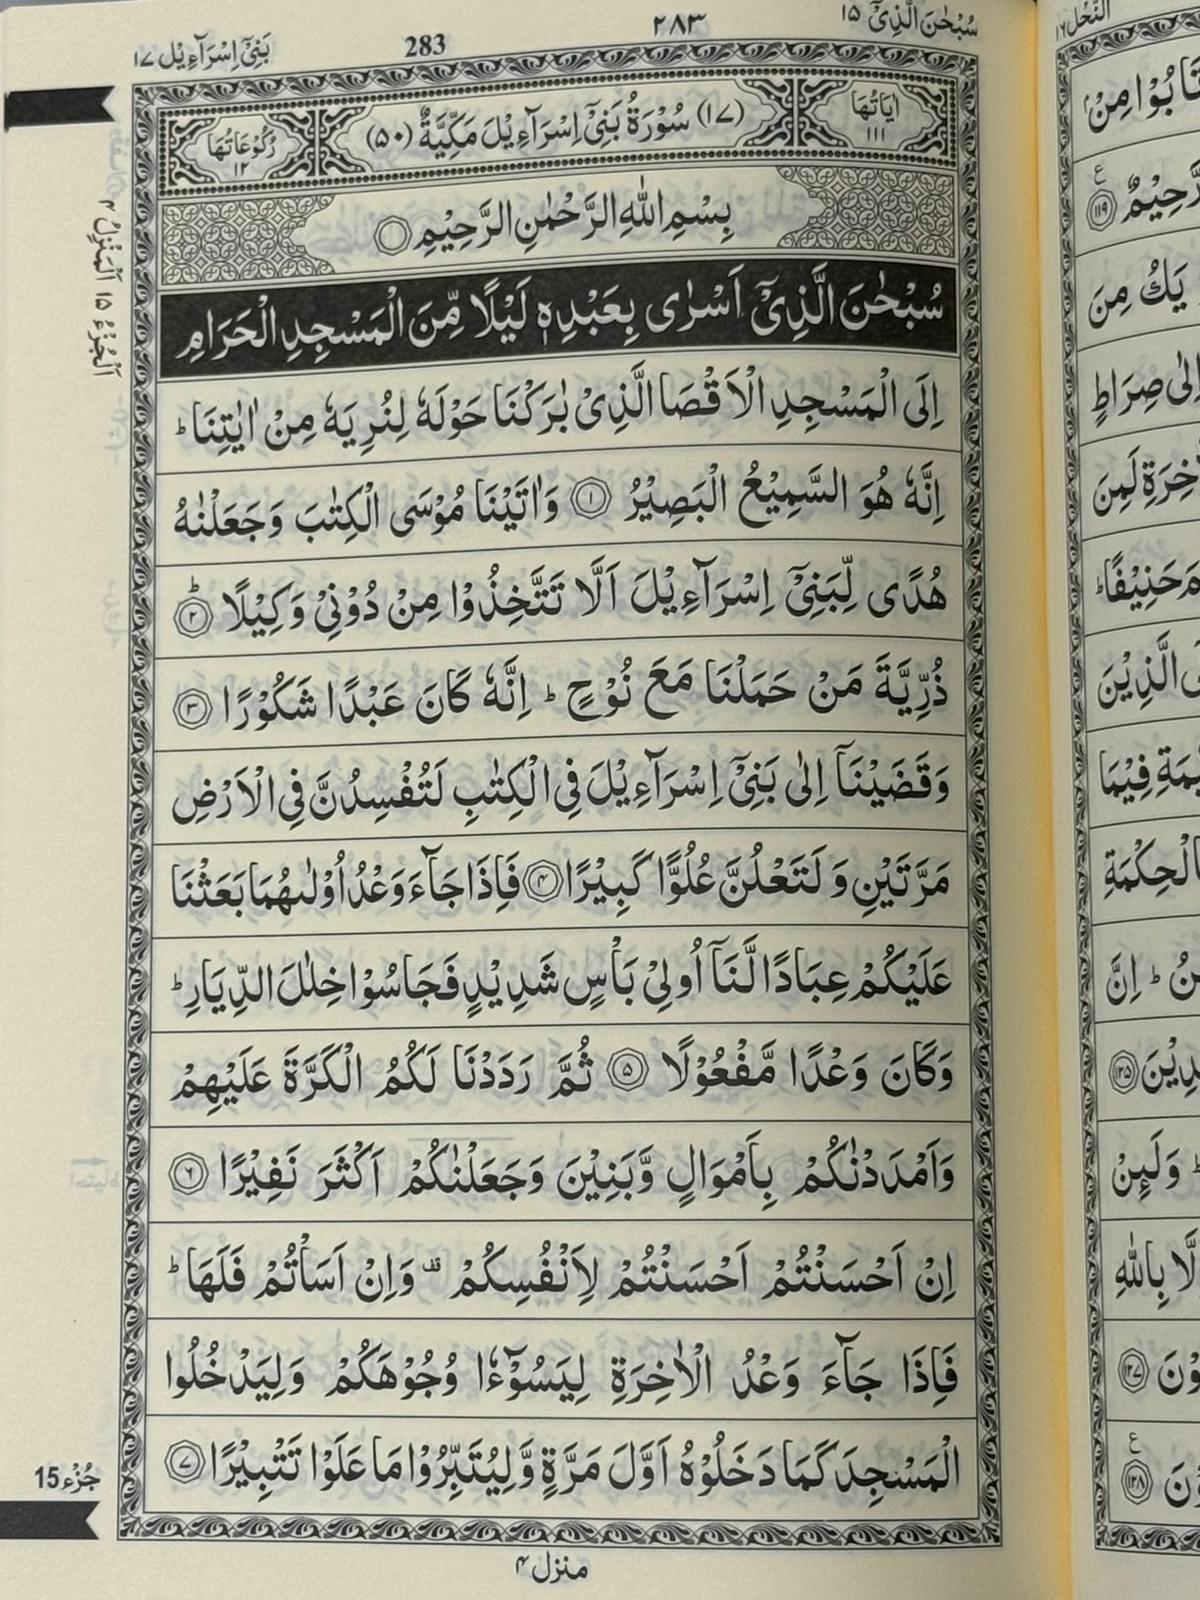 بَنِیْۤ اِسْرَآءِیْل ١٧
283
٢٨٣
سُبْحٰنَ الَّذِیْۤ ١٥
اٰیَاتُهَا ١١١
(١٧) سُوْرَةُ بَنِیْۤ اِسْرَآءِیْلَ مَكِّیَّةٌ (٥٠)
رُكُوْعَاتُهَا ١٢
بِسْمِ اللّٰهِ الرَّحْمٰنِ الرَّحِیْمِ
سُبْحٰنَ الَّذِیْۤ اَسْرٰی بِعَبْدِهٖ لَیْلًا مِّنَ الْمَسْجِدِ الْحَرَامِ
اِلَی الْمَسْجِدِ الْاَقْصَا الَّذِیْ بٰرَكْنَا حَوْلَهٗ لِنُرِیَهٗ مِنْ اٰیٰتِنَا ؕ
اِنَّهٗ هُوَ السَّمِیْعُ الْبَصِیْرُ ﴿١﴾ وَاٰتَیْنَا مُوْسَی الْكِتٰبَ وَجَعَلْنٰهُ
هُدًی لِّبَنِیْۤ اِسْرَآءِیْلَ اَلَّا تَتَّخِذُوْا مِنْ دُوْنِیْ وَكِیْلًا ؕ﴿٢﴾
ذُرِّیَّةَ مَنْ حَمَلْنَا مَعَ نُوْحٍ ؕ اِنَّهٗ كَانَ عَبْدًا شَكُوْرًا ﴿٣﴾
وَقَضَیْنَاۤ اِلٰی بَنِیْۤ اِسْرَآءِیْلَ فِی الْكِتٰبِ لَتُفْسِدُنَّ فِی الْاَرْضِ
مَرَّتَیْنِ وَ لَتَعْلُنَّ عُلُوًّا كَبِیْرًا ﴿٤﴾ فَاِذَا جَآءَ وَعْدُ اُوْلٰىهُمَا بَعَثْنَا
عَلَیْكُمْ عِبَادًا لَّنَاۤ اُولِیْ بَاْسٍ شَدِیْدٍ فَجَاسُوْا خِلٰلَ الدِّیَارِ ؕ
وَكَانَ وَعْدًا مَّفْعُوْلًا ﴿٥﴾ ثُمَّ رَدَدْنَا لَكُمُ الْكَرَّةَ عَلَیْهِمْ
وَاَمْدَدْنٰكُمْ بِاَمْوَالٍ وَّبَنِیْنَ وَجَعَلْنٰكُمْ اَكْثَرَ نَفِیْرًا ﴿٦﴾
اِنْ اَحْسَنْتُمْ اَحْسَنْتُمْ لِاَنْفُسِكُمْ ۫ وَاِنْ اَسَاْتُمْ فَلَهَا ؕ
فَاِذَا جَآءَ وَعْدُ الْاٰخِرَةِ لِیَسُوْٓءٗا وُجُوْهَكُمْ وَلِیَدْخُلُوا
الْمَسْجِدَ كَمَا دَخَلُوْهُ اَوَّلَ مَرَّةٍ وَّلِیُتَبِّرُوْا مَا عَلَوْا تَتْبِیْرًا ﴿٧﴾
منزل ٤
اَلْجُزْءُ ١٥ اَلْمَنْزِلُ ٤
جُزْء 15
النَّحْل ١٦
مِنْ
رَّحِیْمٌ ﴿١١٩﴾
یَكُ مِنَ
اِلٰی صِرَاطٍ
لَمِنَ
حَنِیْفًا ؕ
الَّذِیْنَ
فِیْمَا
الْحِكْمَةِ
ؕ اِنَّ
﴿١٢٥﴾
وَلَىِٕنْ
بِاللّٰهِ
﴿١٢٧﴾
﴿١٢٨﴾